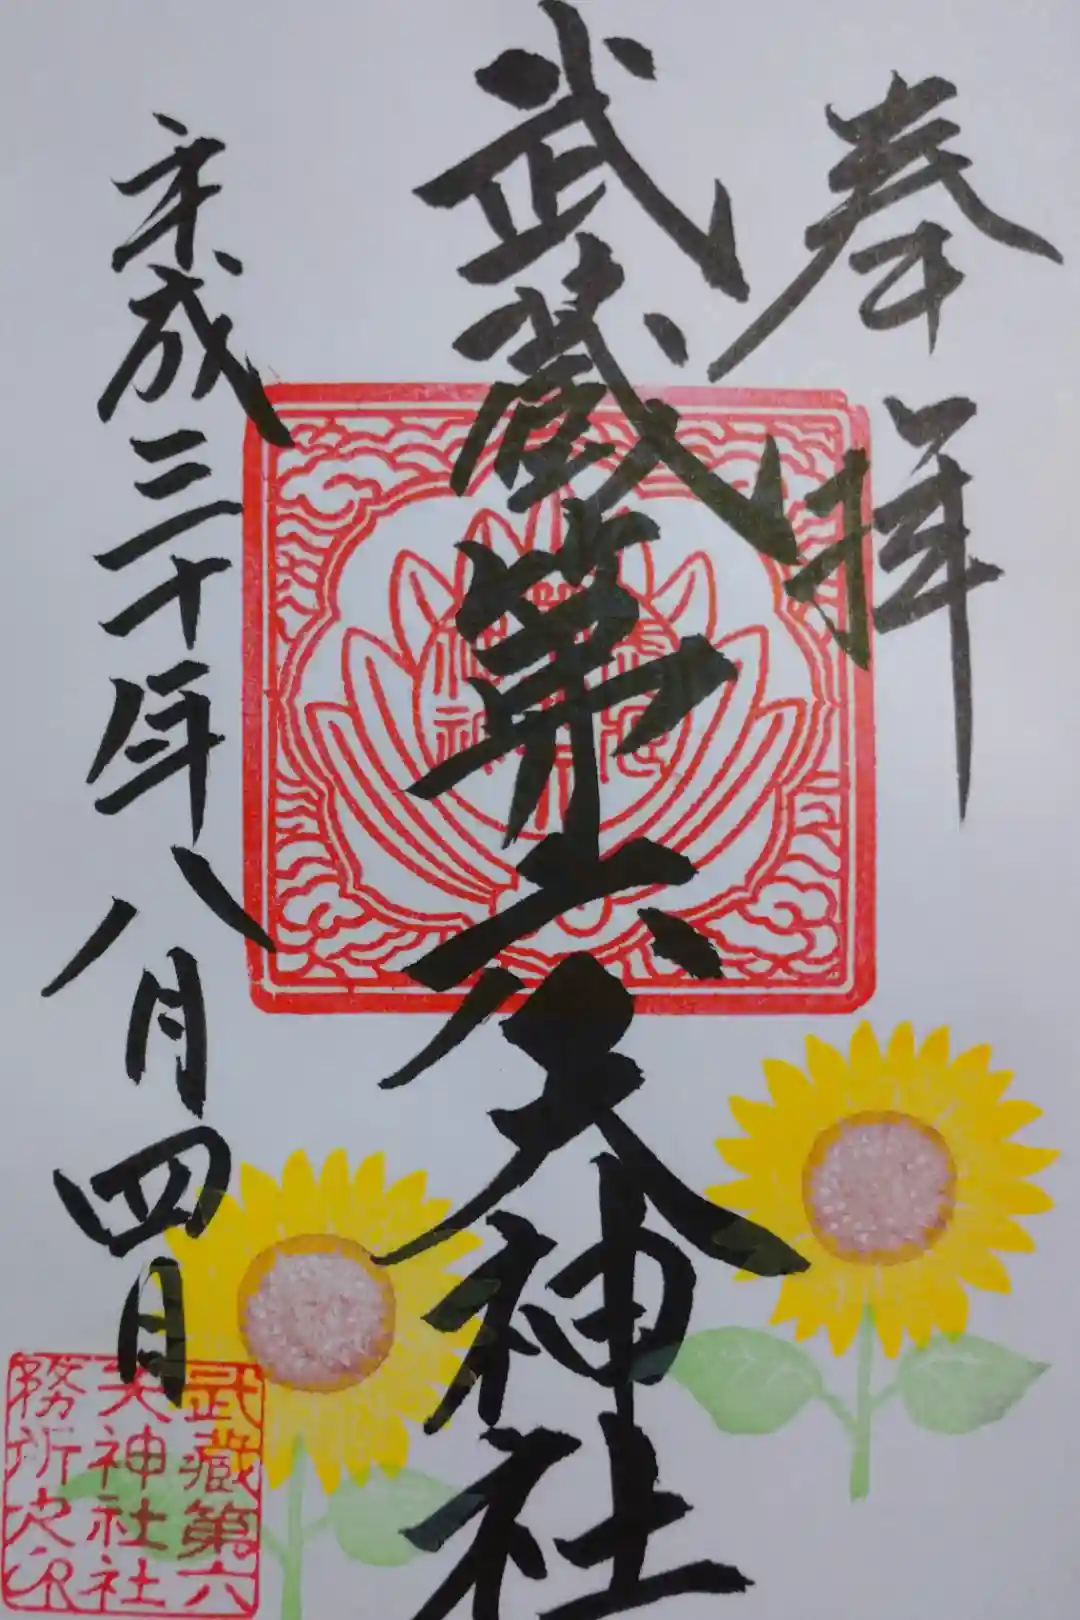 奉拝
武蔵第六天神社
平成三十年八月四日
武蔵第六
天神社社
務所之印